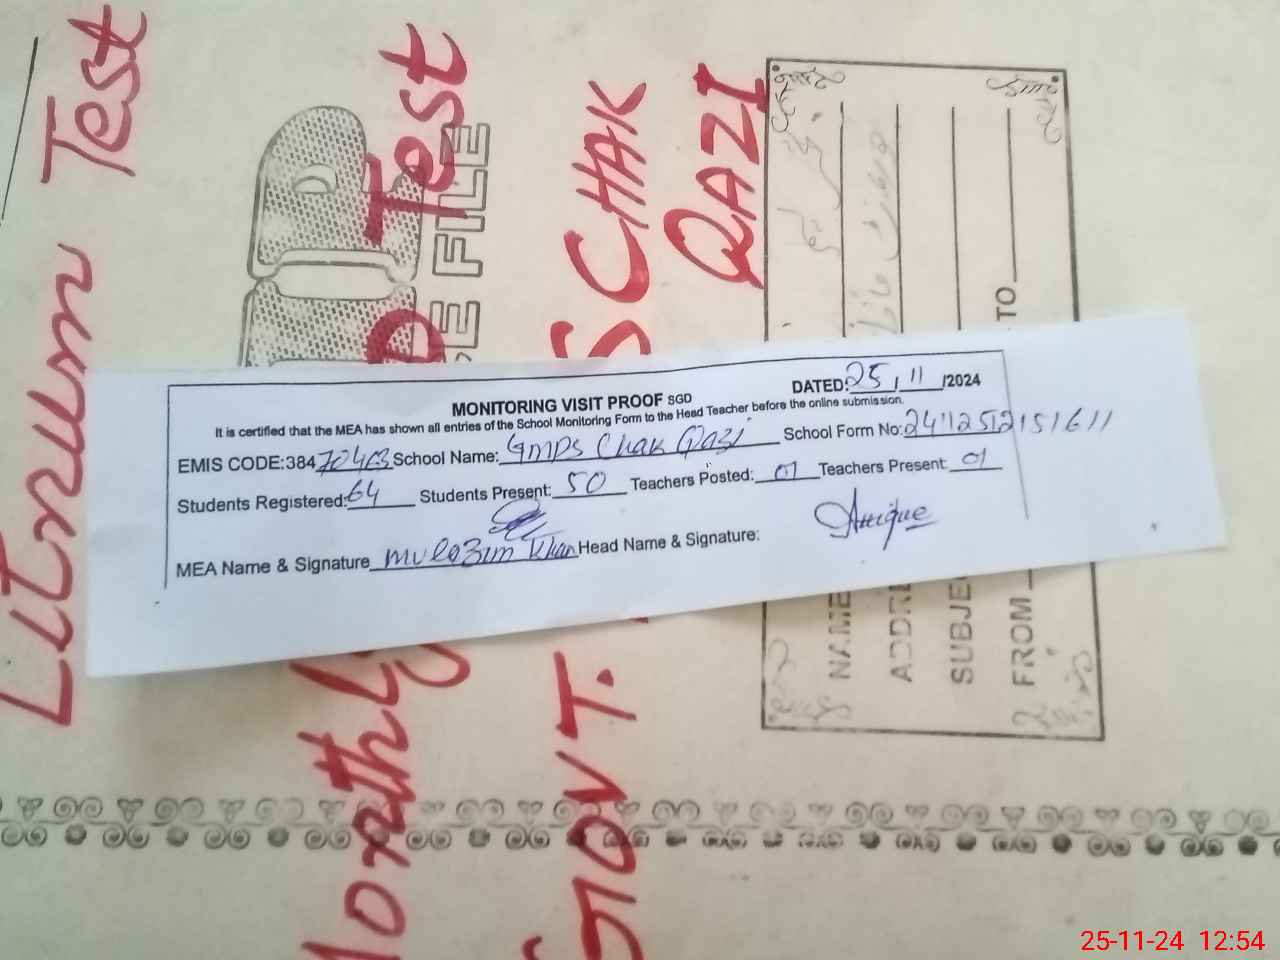 Literum Test
Monthly
Test
FILE
GOVT.
CHAK
QAZI
TO
NAME
ADDRE
SUBJE
FROM
DATED: 25/11/2024
MONITORING VISIT PROOF SGD
It is certified that the MEA has shown all entries of the School Monitoring Form to the Head Teacher before the online submission.
EMIS CODE:384 School Name: GMPS Chak Qazi School Form No: 2411252151611
Students Registered: 64 Students Present: 50 Teachers Posted: 01 Teachers Present: 01
MEA Name & Signature Mulazim Khan Head Name & Signature:
25-11-24 12:54